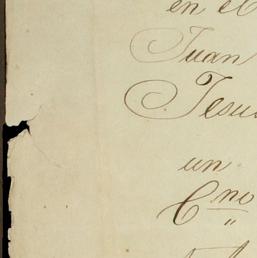 en el
Juan
Jesus
un
C.no